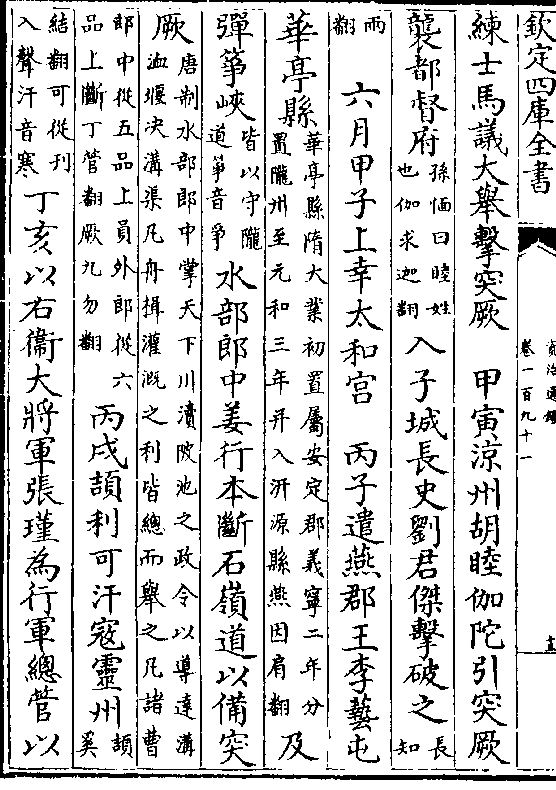 欽定四庫全書
資治通鑑
卷一百九十一
練士馬議大舉擊突厥 甲寅涼州胡睦伽陀引突厥
襲都督府孫愐曰睦姓也伽求迦翻入子城長史劉君傑擊破之長知
兩翻 六月甲子上幸太和宫 丙子遣燕郡王李藝屯
華亭縣華亭縣隋大業初置屬安定郡義寧二年分置隴州至元和三年并入汧源縣燕因肩翻及
彈箏峽皆以守隴道箏音爭水部郎中姜行本斷石嶺道以備突
厥唐制水部郎中掌天下川瀆陂池之政令以導達溝洫堰决溝渠凡舟楫灌溉之利皆總而舉之凡諸曹
郎中從五品上員外郎從六品上斷丁管翻厥九勿翻 丙戌頡利可汗寇靈州頡奚
結翻可從刊入聲汗音寒 丁亥以右衞大將軍張瑾為行軍總管以